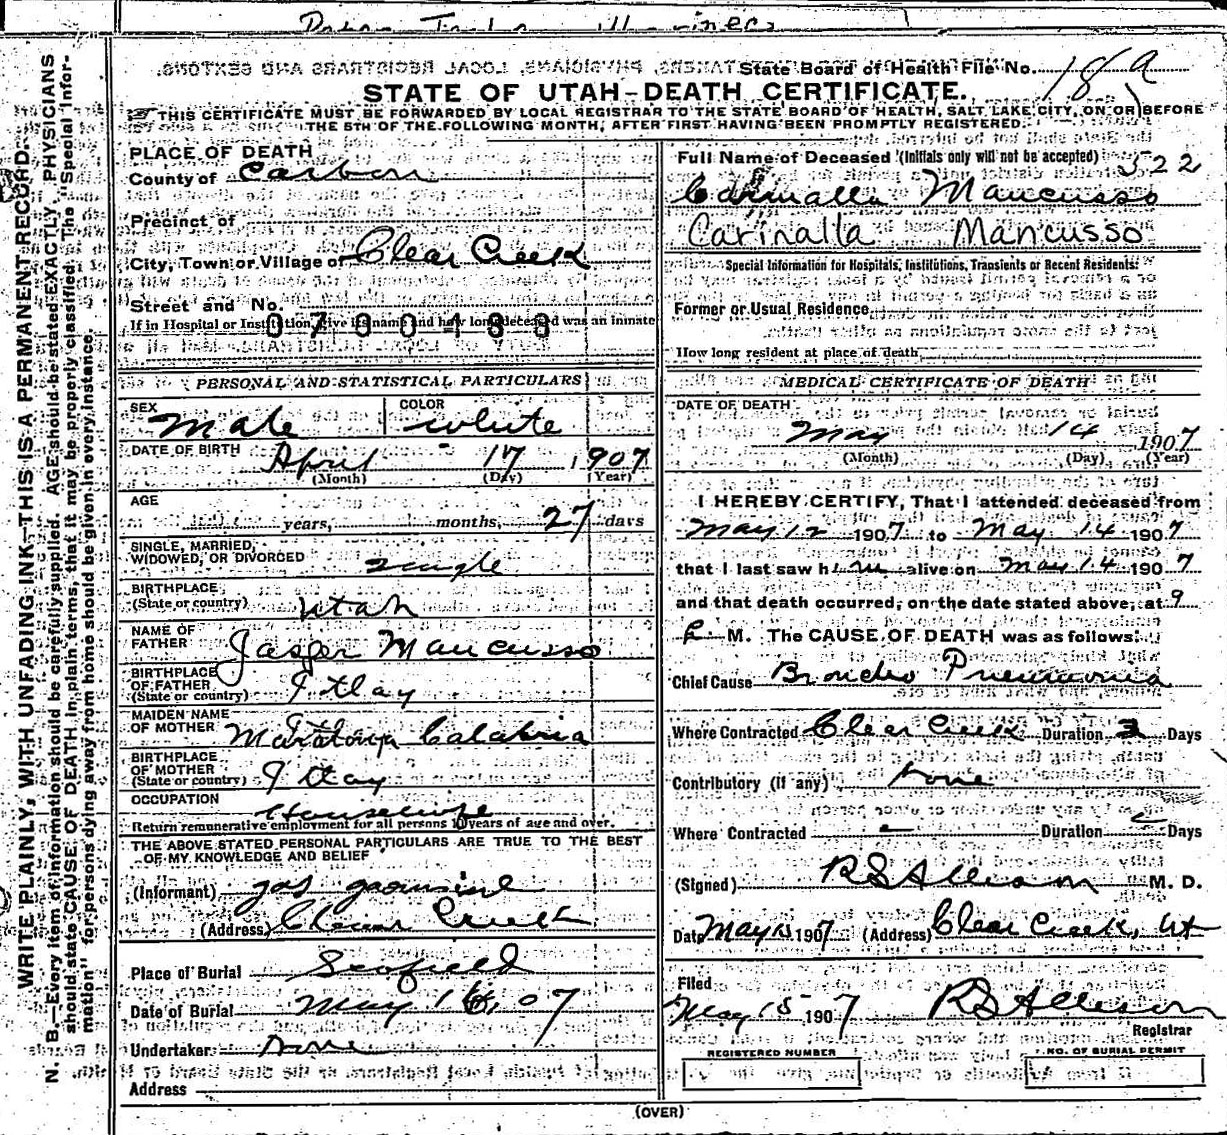 State Board of Health File No. 18a
STATE OF UTAH-DEATH CERTIFICATE.
THIS CERTIFICATE MUST BE FORWARDED BY LOCAL REGISTRAR TO THE STATE BOARD OF HEALTH, SALT LAKE CITY, ON OR BEFORE
THE 5TH OF THE FOLLOWING MONTH, AFTER FIRST HAVING BEEN PROMPTLY REGISTERED.
WRITE PLAINLY, WITH UNFADING INK—THIS IS A PERMANENT RECORD.
N. B.—Every item of information should be carefully supplied. AGE should be stated EXACTLY. PHYSICIANS
should state CAUSE OF DEATH in plain terms, that it may be properly classified. The "Special Infor-
mation" for persons dying away from home should be given in every instance.
PLACE OF DEATH
County of Carbon
Precinct of
City, Town or Village of Clear Creek
Street and No.
If in Hospital or Institution, give its name and how long deceased was an inmate
0790180
PERSONAL AND STATISTICAL PARTICULARS
SEX Male COLOR White
DATE OF BIRTH April 17 1907
(Month) (Day) (Year)
AGE years, months, 27 days
SINGLE, MARRIED, WIDOWED, OR DIVORCED single
BIRTHPLACE (State or country) Utah
NAME OF FATHER Jasper Mancusso
BIRTHPLACE OF FATHER (State or country) Itlay
MAIDEN NAME OF MOTHER Calabria
BIRTHPLACE OF MOTHER (State or country) Itlay
OCCUPATION Housewife
Return remunerative employment for all persons 10 years of age and over.
THE ABOVE STATED PERSONAL PARTICULARS ARE TRUE TO THE BEST
OF MY KNOWLEDGE AND BELIEF
(Informant) Jas
(Address) Clear Creek
Place of Burial Scofield
Date of Burial May 16, 07
Undertaker None
Address
Full Name of Deceased (Initials only will not be accepted) 522
Carinalla Mancusso
Carinalla Mancusso
Special Information for Hospitals, Institutions, Transients or Recent Residents.
Former or Usual Residence
How long resident at place of death
MEDICAL CERTIFICATE OF DEATH
DATE OF DEATH
May 14 1907
(Month) (Day) (Year)
I HEREBY CERTIFY, That I attended deceased from
May 12 1907 to May 14 1907
that I last saw him alive on May 14 1907
and that death occurred, on the date stated above, at 9
P. M. The CAUSE OF DEATH was as follows:
Chief Cause Broncho Pneumonia
Where Contracted Clear Creek Duration 3 Days
Contributory (if any) None
Where Contracted Duration Days
(Signed) RS Allison M. D.
Date May 15 1907 (Address) Clear Creek, Ut
Filed
May 15 1907 RS Allison
Registrar
REGISTERED NUMBER NO. OF BURIAL PERMIT
(OVER)